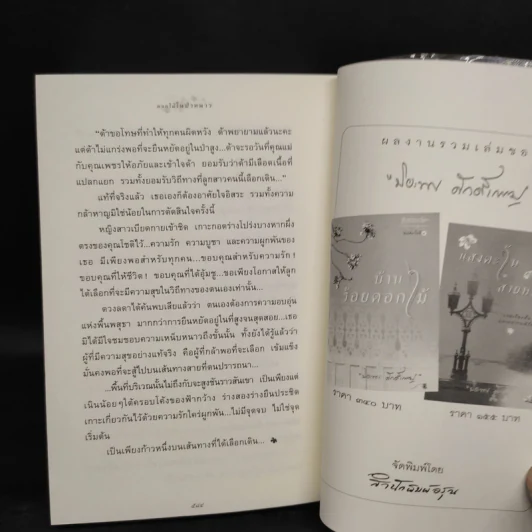 “ต้าขอโทษที่ทำให้ทุกคนผิดหวัง ต้าพยายามแล้วนะคะ
แต่ต้าไม่แกร่งพอที่จะยืนหยัดอยู่ในป่าสูง...ต้าจะรอวันที่คุณแม่
กับคุณเพชรให้อภัยและเข้าใจต้า ยอมรับว่าต้ามีเลือดเนื้อที่
แปลกแยก รวมทั้งยอมรับวิถีทางที่ลูกสาวคนนี้เลือกเดิน...”
แท้ที่จริงแล้ว เธอเองก็ต้องอาศัยใจอิสระ รวมทั้งความ
กล้าหาญมิใช่น้อยในการตัดสินใจครั้งนี้
หญิงสาวเบียดกายเข้าชิด เกาะกอดร่างโปร่งบางหากผึ่ง
ตรงของคุณโชติไว้...ความรัก ความบูชา และความผูกพันของ
เธอ มีเพียงพอสำหรับทุกคน...ขอบคุณสำหรับความรัก !
ขอบคุณที่ให้ชีวิต ! ขอบคุณที่ได้อุ้มชู...ขอเพียงโอกาสให้ลูก
ได้เลือกที่จะมีความสุขในวิถีทางของตนเองเท่านั้น...
ดวงลดาได้ค้นพบเสียแล้วว่า ตนเองต้องการความอบอุ่น
แห่งพื้นพสุธา มากกว่าการยืนหยัดอยู่ในที่สูงจนสุดสอย...เธอ
มิได้มีใจชมชอบความเหน็บหนาวถึงขั้นนั้น ทั้งยังได้รู้แล้วว่า
ผู้ที่มีความสุขอย่างแท้จริง คือผู้ที่กล้าพอที่จะเลือก เข้มแข็ง
มั่นคงพอที่จะสู้ไปบนเส้นทางสายที่ตนปรารถนา...
...พื้นที่บริเวณนั้นไม่ถึงกับจะสูงชันราวสันเขา เป็นเพียงแค่
เนินน้อยๆใต้ครอบโค้งของฟ้ากว้าง ร่างสองร่างยืนประชิด
เกาะเกี่ยวกันไว้ด้วยความรักใคร่ผูกพัน...ไม่มีจุดจบ ไม่ใช่จุด
เริ่มต้น
เป็นเพียงก้าวหนึ่งบนเส้นทางที่ได้เลือกเดิน...
ผลงานรวมเล่มขอ
บ้าน
ร้อยดอกไม้
ราคา ๓๔๐ บาท
ราคา ๑๕๕ บาท
จัดพิมพ์โดย
สำนักพิมพ์อรุณ